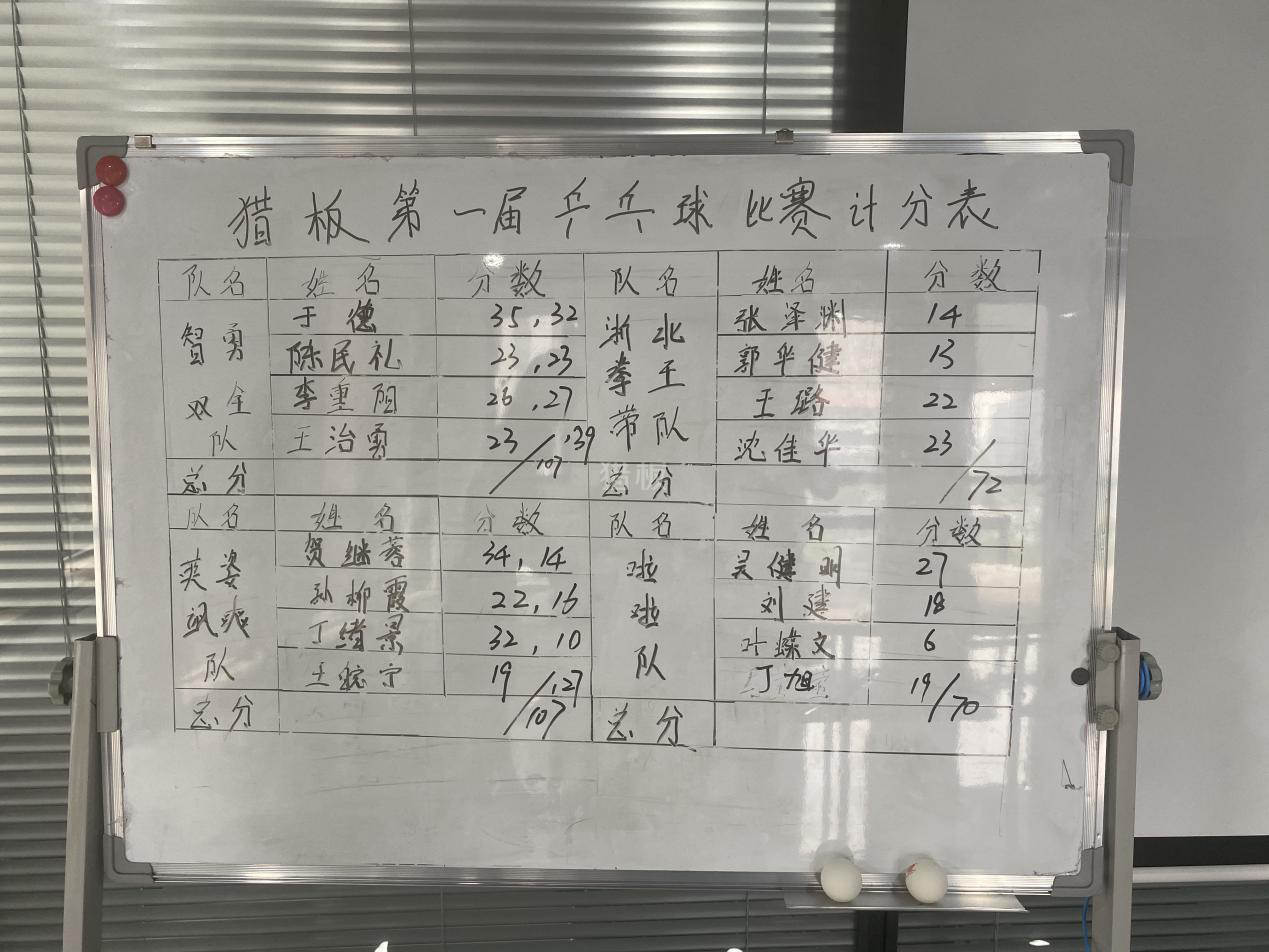 猎板第一届乒乓球比赛计分表
队名 姓名 分数 队名 姓名 分数
智勇双全队 于德 35,32 浙北拳王带队 张泽渊 14
陈民礼 23,23 郭华健 13
李重阳 26,27 王璐 22
王治勇 23,39 沈佳华 23
总分 /107 总分 /72
队名 姓名 分数 队名 姓名 分数
英姿飒爽队 贺继蓉 34,14 啦啦队 吴健明 27
孙柳霞 22,16 刘建 18
丁绪景 32,10 叶蝶文 6
王 宁 19/127 丁旭 19/70
总分 /107 总分
猎板